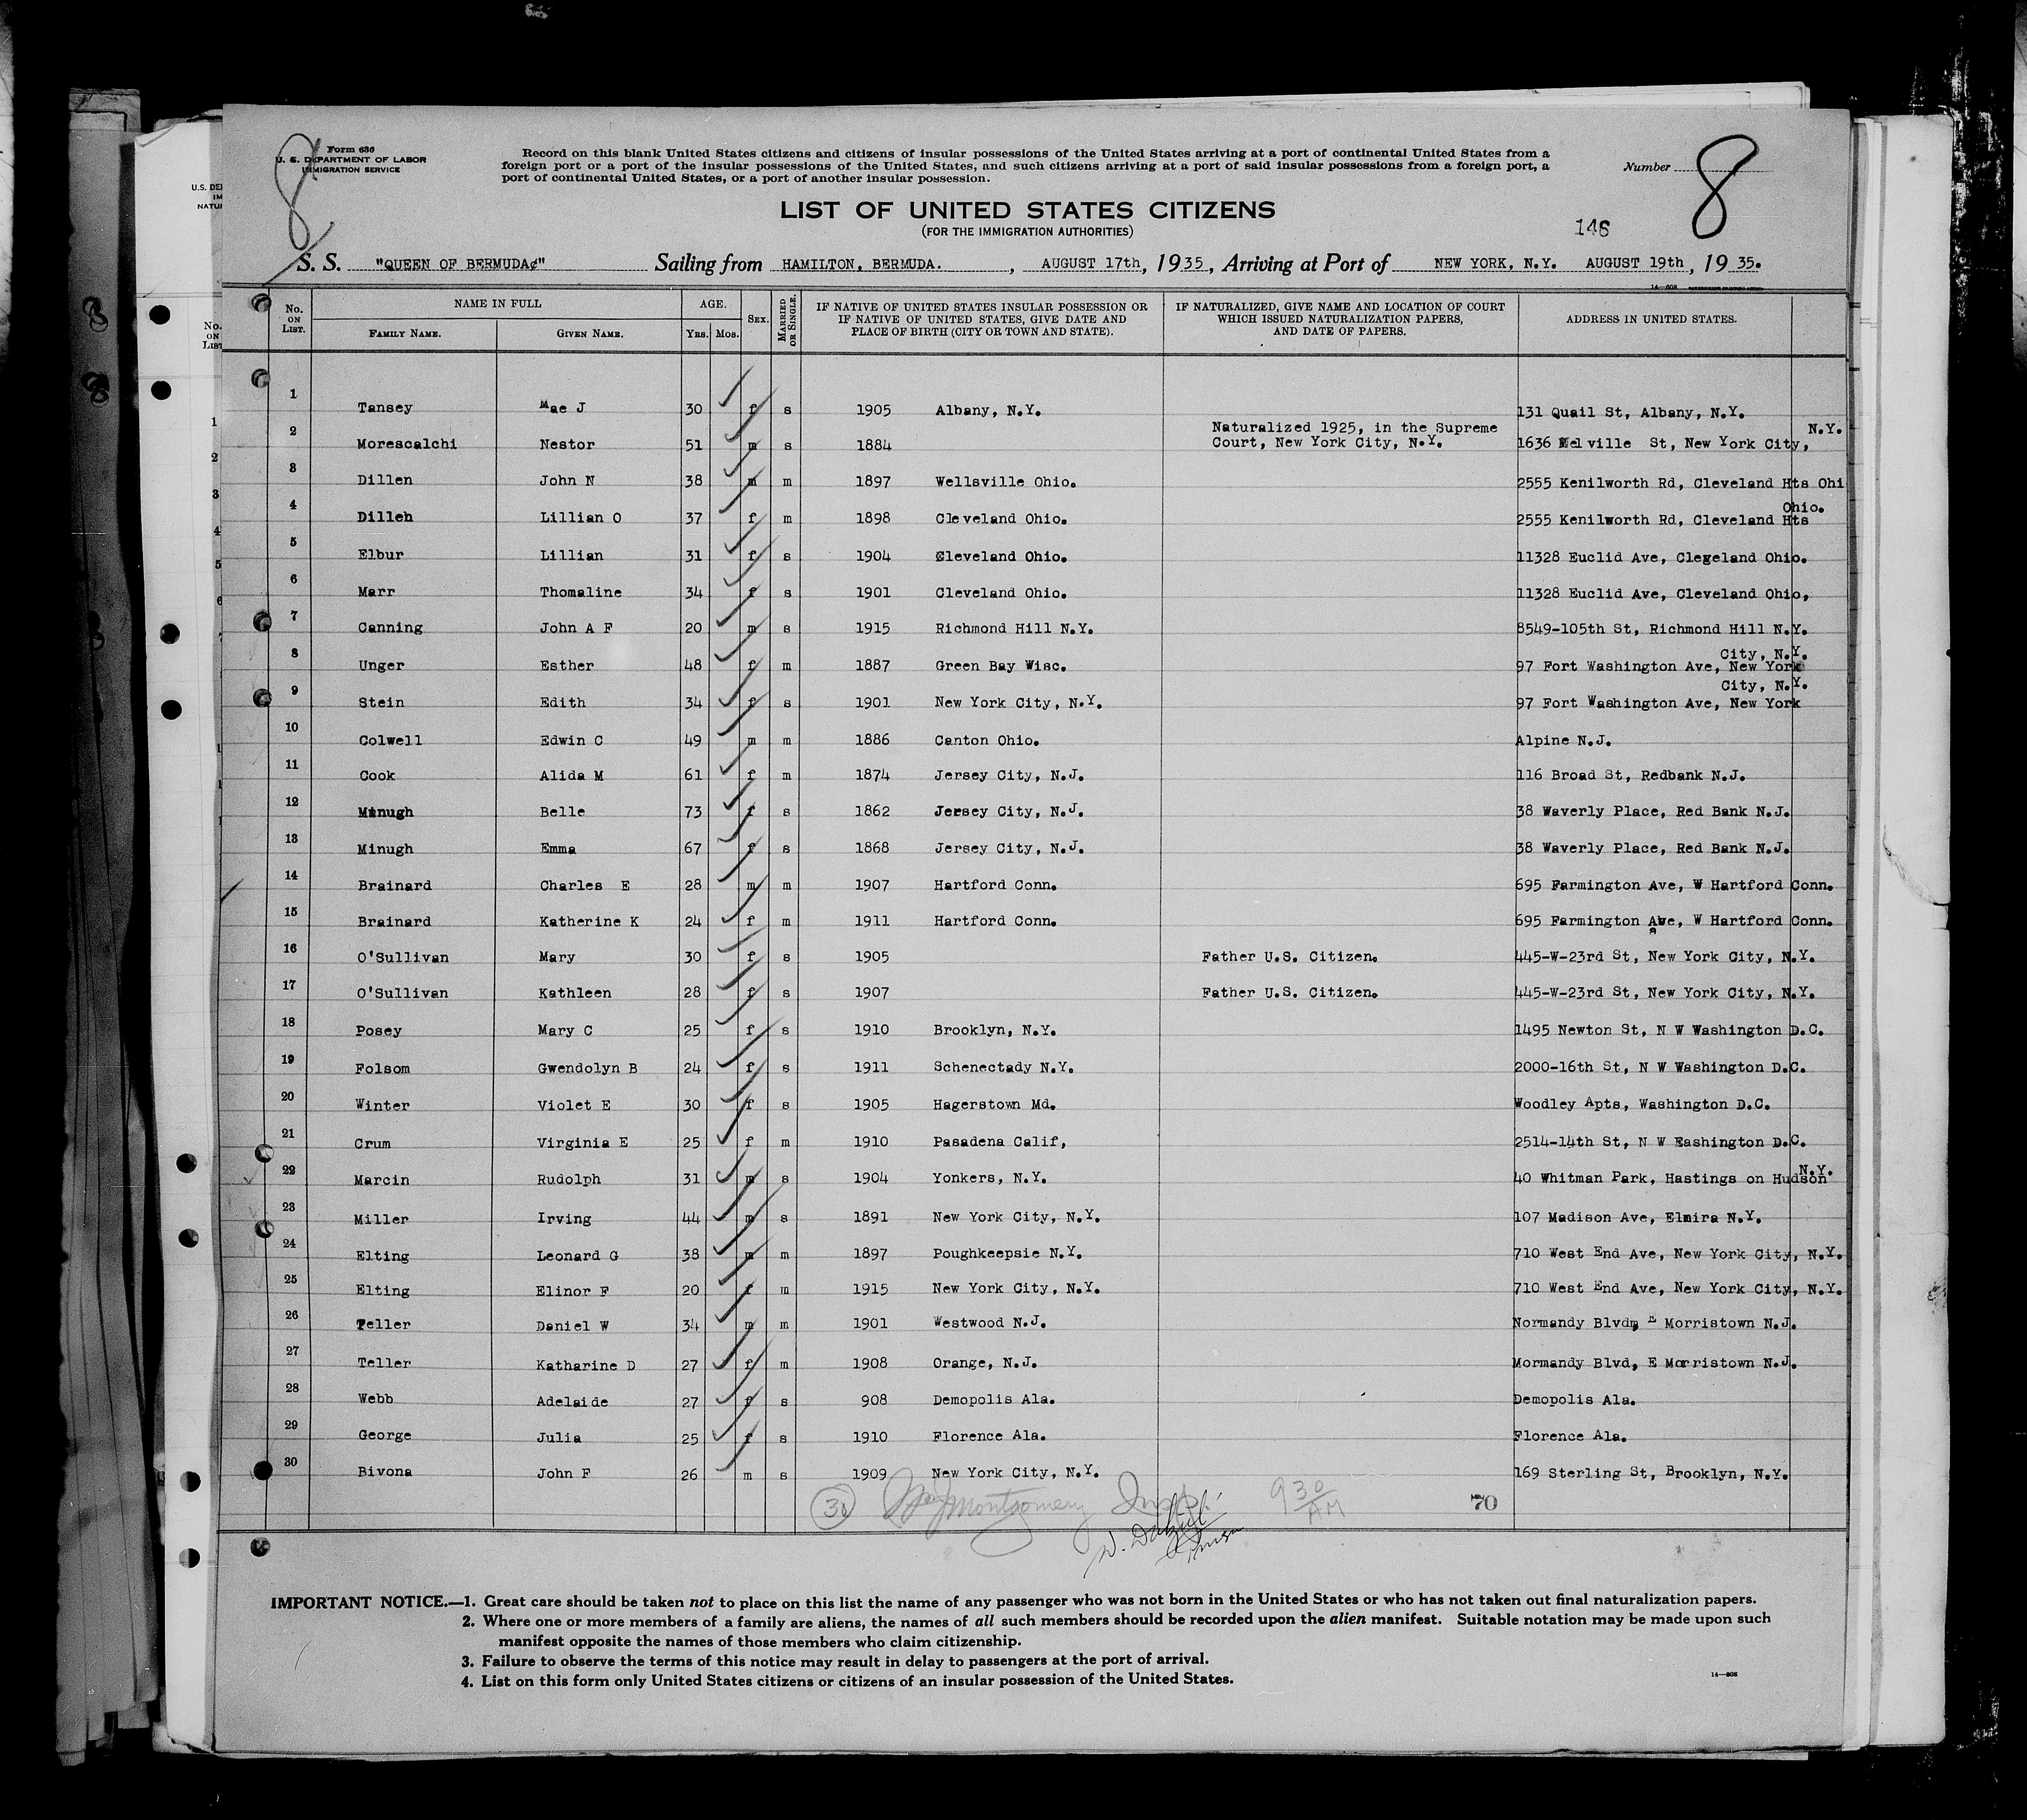 8
Form 630
U. S. DEPARTMENT OF LABOR
IMMIGRATION SERVICE
Record on this blank United States citizens and citizens of insular possessions of the United States arriving at a port of continental United States from a
foreign port or a port of the insular possessions of the United States, and such citizens arriving at a port of said insular possessions from a foreign port, a
port of continental United States, or a port of another insular possession.
Number 8
LIST OF UNITED STATES CITIZENS
(FOR THE IMMIGRATION AUTHORITIES)
146
S. S. "QUEEN OF BERMUDA¢" Sailing from HAMILTON, BERMUDA. , AUGUST 17th, 1935, Arriving at Port of NEW YORK, N.Y. AUGUST 19th, 1935.
No. ON LIST. NAME IN FULL AGE. SEX. MARRIED OR SINGLE. IF NATIVE OF UNITED STATES INSULAR POSSESSION OR IF NATIVE OF UNITED STATES, GIVE DATE AND PLACE OF BIRTH (CITY OR TOWN AND STATE). IF NATURALIZED, GIVE NAME AND LOCATION OF COURT WHICH ISSUED NATURALIZATION PAPERS, AND DATE OF PAPERS. ADDRESS IN UNITED STATES.
FAMILY NAME. GIVEN NAME. YRS. MOS.
1 Tansey Mae J 30 f s 1905 Albany, N.Y. 131 Quail St, Albany, N.Y.
2 Morescalchi Nestor 51 m s 1884 Naturalized 1925, in the Supreme Court, New York City, N.Y. 1636 Melville St, New York City, N.Y.
3 Dillen John N 38 m m 1897 Wellsville Ohio. 2555 Kenilworth Rd, Cleveland Hts Ohi
4 Dillen Lillian O 37 f m 1898 Cleveland Ohio. 2555 Kenilworth Rd, Cleveland Hts Ohio.
5 Elbur Lillian 31 f s 1904 Cleveland Ohio. 11328 Euclid Ave, Clegeland Ohio.
6 Marr Thomaline 34 f s 1901 Cleveland Ohio. 11328 Euclid Ave, Cleveland Ohio,
7 Canning John A F 20 m s 1915 Richmond Hill N.Y. 8549-105th St, Richmond Hill N.Y.
8 Unger Esther 48 f m 1887 Green Bay Wisc. 97 Fort Washington Ave, New York City, N.Y.
9 Stein Edith 34 f s 1901 New York City, N.Y. 97 Fort Washington Ave, New York City, N.Y.
10 Colwell Edwin C 49 m m 1886 Canton Ohio. Alpine N.J.
11 Cook Alida M 61 f m 1874 Jersey City, N.J. 116 Broad St, Redbank N.J.
12 Minugh Belle 73 f s 1862 Jersey City, N.J. 38 Waverly Place, Red Bank N.J.
13 Minugh Emma 67 f s 1868 Jersey City, N.J. 38 Waverly Place, Red Bank N.J.
14 Brainard Charles E 28 m m 1907 Hartford Conn. 695 Farmington Ave, W Hartford Conn.
15 Brainard Katherine K 24 f m 1911 Hartford Conn. 695 Farmington Ave, W Hartford Conn.
16 O'Sullivan Mary 30 f s 1905 Father U.S. Citizen. 445-W-23rd St, New York City, N.Y.
17 O'Sullivan Kathleen 28 f s 1907 Father U.S. Citizen. 445-W-23rd St, New York City, N.Y.
18 Posey Mary C 25 f s 1910 Brooklyn, N.Y. 1495 Newton St, N W Washington D.C.
19 Folsom Gwendolyn B 24 f s 1911 Schenectady N.Y. 2000-16th St, N W Washington D.C.
20 Winter Violet E 30 f s 1905 Hagerstown Md. Woodley Apts, Washington D.C.
21 Crum Virginia E 25 f m 1910 Pasadena Calif, 2514-14th St, N W Eashington D.C.
22 Marcin Rudolph 31 m s 1904 Yonkers, N.Y. 40 Whitman Park, Hastings on Hudson N.Y.
23 Miller Irving 44 m s 1891 New York City, N.Y. 107 Madison Ave, Elmira N.Y.
24 Elting Leonard G 38 m m 1897 Poughkeepsie N.Y. 710 West End Ave, New York City, N.Y.
25 Elting Elinor F 20 f m 1915 New York City, N.Y. 710 West End Ave, New York City, N.Y.
26 Teller Daniel W 34 m m 1901 Westwood N.J. Normandy Blvd, E Morristown N.J.
27 Teller Katharine D 27 f m 1908 Orange, N.J. Mormandy Blvd, E Morristown N.J.
28 Webb Adelaide 27 f s 908 Demopolis Ala. Demopolis Ala.
29 George Julia 25 f s 1910 Florence Ala. Florence Ala.
30 Bivona John F 26 m s 1909 New York City, N.Y. 169 Sterling St, Brooklyn, N.Y.
30 Montgomery Insp. 9 30 AM 70
IMPORTANT NOTICE.—1. Great care should be taken not to place on this list the name of any passenger who was not born in the United States or who has not taken out final naturalization papers.
2. Where one or more members of a family are aliens, the names of all such members should be recorded upon the alien manifest. Suitable notation may be made upon such
manifest opposite the names of those members who claim citizenship.
3. Failure to observe the terms of this notice may result in delay to passengers at the port of arrival.
4. List on this form only United States citizens or citizens of an insular possession of the United States.
14—608